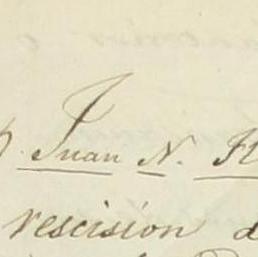 Juan N.
rescision d